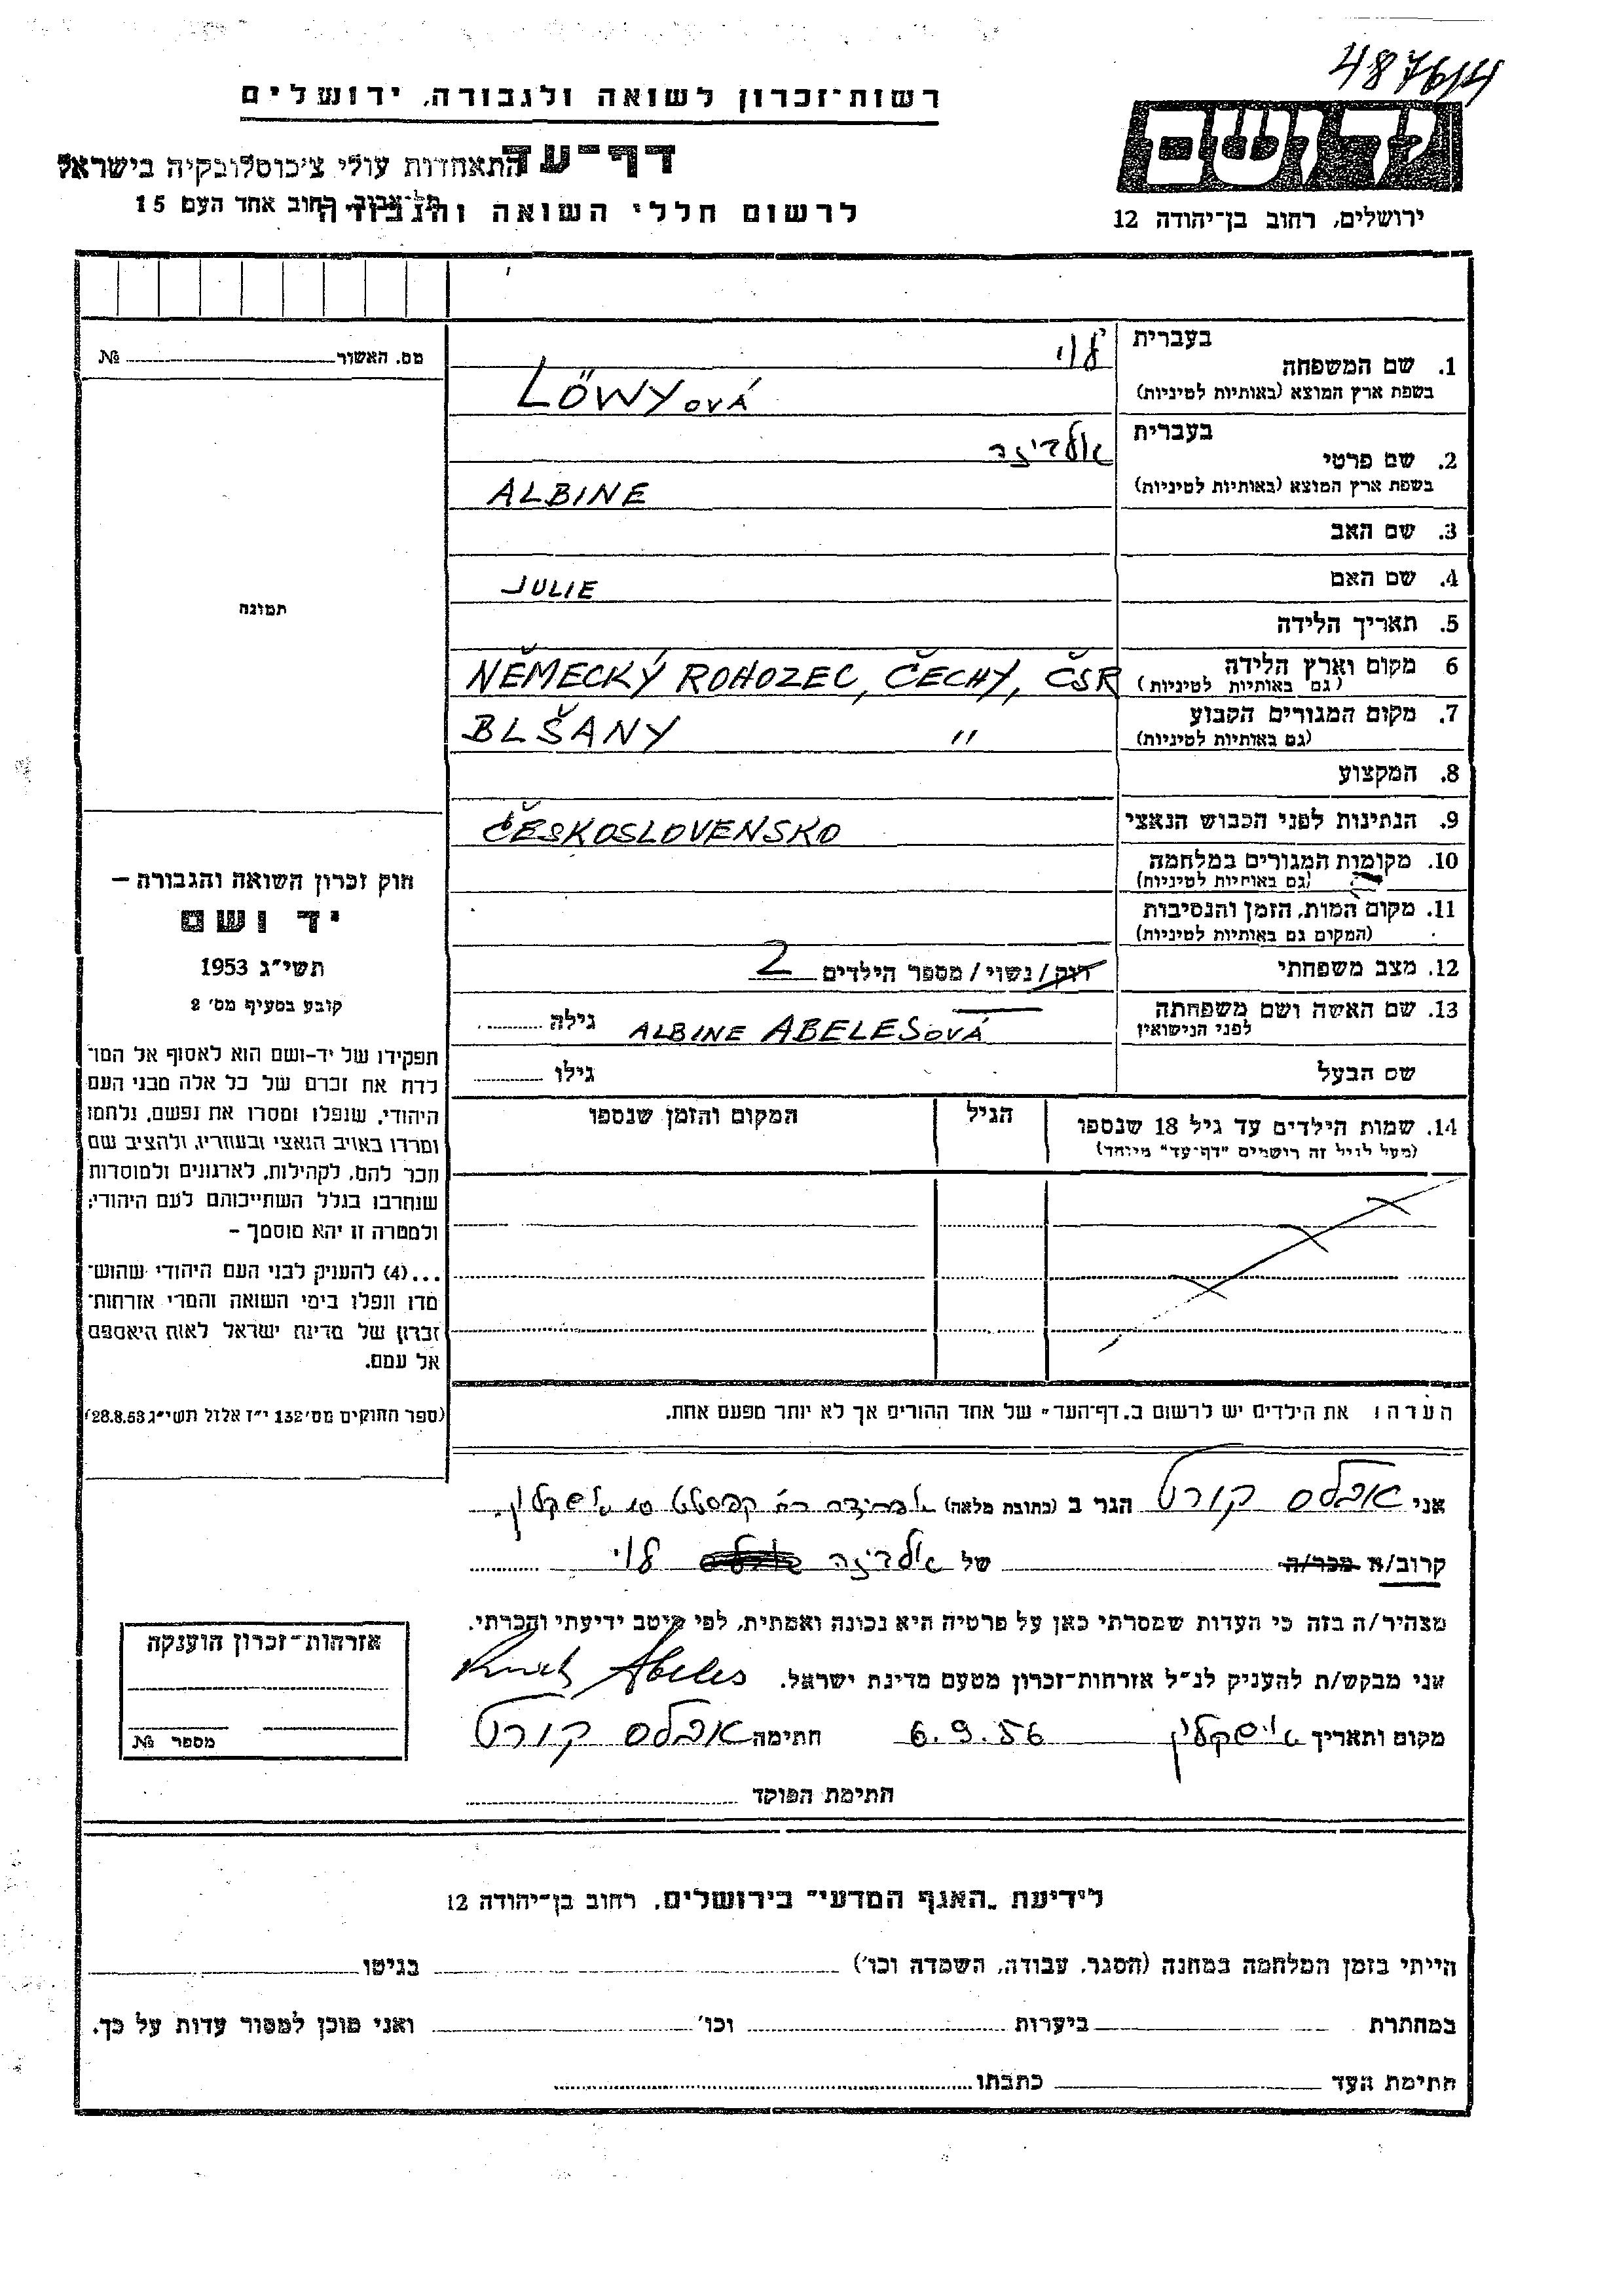 4876/4
רשות־זכרון לשואה ולגבורה, ירושלים
דף־עד
התאחדות עולי צ'כוסלובקיה בישראל
לרשום חללי השואה והגבורה
תל־אביב, רחוב אחד העם 15
יד ושם
ירושלים, רחוב בן־יהודה 12
מס. האשור № 
1. שם המשפחה
בעברית לוי
בשפת ארץ המוצא (באותיות לטיניות) LÖWYOVÁ
2. שם פרטי
בעברית
בשפת ארץ המוצא (באותיות לטיניות) ALBINE
3. שם האב
4. שם האם JULIE
5. תאריך הלידה
6 מקום וארץ הלידה NĚMECKÝ ROHOZEC, ČECHY, ČSR
(גם באותיות לטיניות)
7. מקום המגורים הקבוע BLŠANY "
(גם באותיות לטיניות)
8. המקצוע
9. הנתינות לפני הכבוש הנאצי ČESKOSLOVENSKO
10. מקומות המגורים במלחמה
(גם באותיות לטיניות)
11. מקום המות, הזמן והנסיבות
(המקום גם באותיות לטיניות)
12. מצב משפחתי רוק/נשוי/מספר הילדים 2
13. שם האשה ושם משפחתה
לפני הנישואין ALBINE ABELESOVÁ גילה
שם הבעל גילו
14. שמות הילדים עד גיל 18 שנספו הגיל המקום והזמן שנספו
(מעל לגיל זה רושמים "דף־עד" מיוחד)
הערה: את הילדים יש לרשום ב„דף־העד" של אחד ההורים אך לא יותר מפעם אחת.
תמונה
חוק זכרון השואה והגבורה –
יד ושם
תשי"ג 1953
קובע בסעיף מס' 2
תפקידו של יד-ושם הוא לאסוף אל המו־
לדת את זכרם של כל אלה מבני העם
היהודי, שנפלו ומסרו את נפשם, נלחמו
ומרדו באויב הנאצי ובעוזריו, ולהציב שם
וזכר להם, לקהילות, לארגונים ולמוסדות
שנחרבו בגלל השתייכותם לעם היהודי;
ולמטרה זו יהא מוסמך –
...(4) להעניק לבני העם היהודי שהוש־
מדו ונפלו בימי השואה והמרי אזרחות־
זכרון של מדינת ישראל לאות היאספם
אל עמם.
(ספר החוקים מס' 132 י"ז אלול תשי"ג 28.8.53)
אני אבלס קורט הגר ב (כתובת מלאה)
קרוב/ה מכר/ה של לוי
מצהיר/ה בזה כי העדות שמסרתי כאן על פרטיה היא נכונה ואמתית, לפי מיטב ידיעתי והכרתי.
אני מבקש/ת להעניק לנ"ל אזרחות־זכרון מטעם מדינת ישראל. Abeles
מקום ותאריך אשקלון 6.9.56 חתימה אבלס קורט
חתימת הפוקד
אזרחות־זכרון הוענקה
מספר №
לידיעת „האגף המדעי" בירושלים, רחוב בן־יהודה 12
הייתי בזמן המלחמה במחנה (הסגר, עבודה, השמדה וכו') בגיטו
במחתרת ביערות וכו' ואני מוכן למסור עדות על כך.
חתימת העד כתבתו